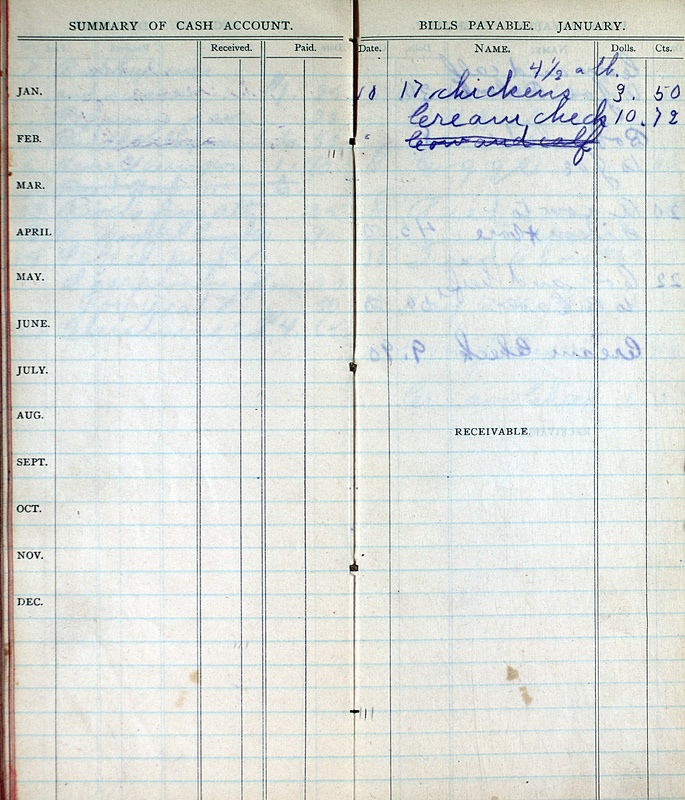 SUMMARY OF CASH ACCOUNT.
Received. Paid.
JAN.
FEB.
MAR.
APRIL
MAY.
JUNE.
JULY.
AUG.
SEPT.
OCT.
NOV.
DEC.
BILLS PAYABLE. JANUARY.
Date. NAME. Dolls. Cts.
4 1/2 a lb.
18 17 chickens 9. 50
Cream check 10. 12
" Cow and calf
RECEIVABLE.